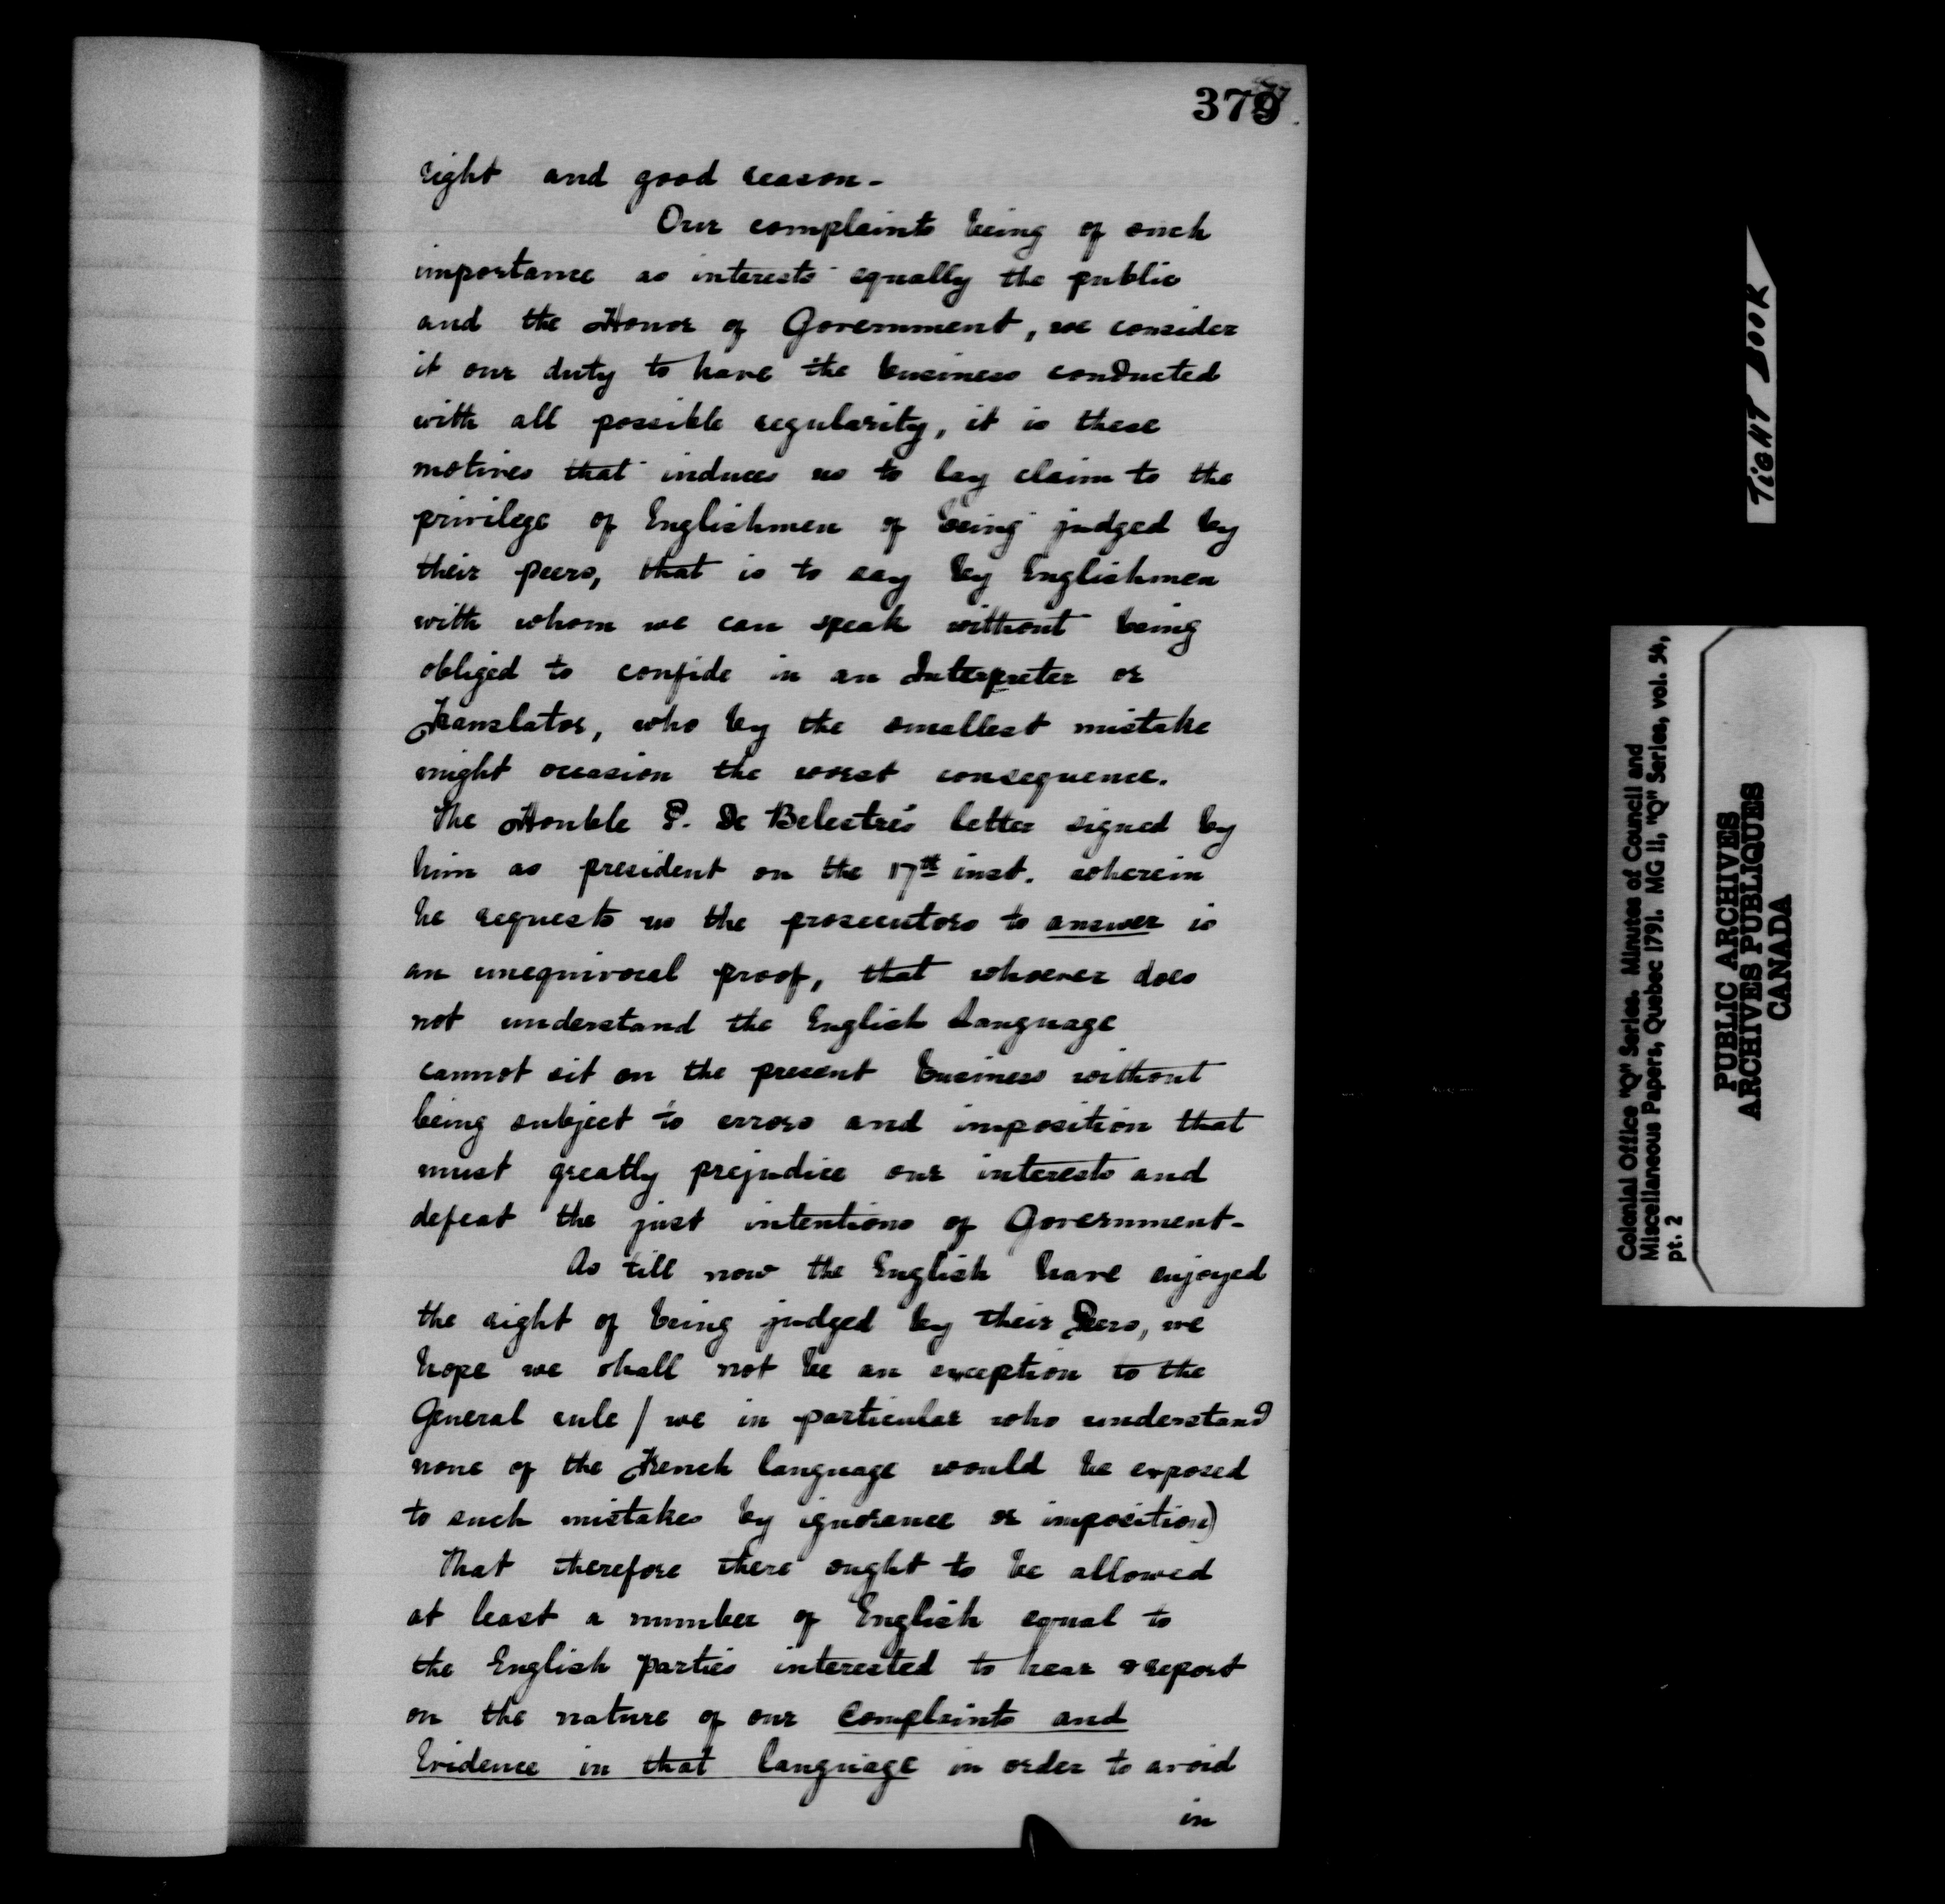 379
right and good reason-
Our complaints being of such
importance as interests equally the public
and the Honor of Government, we consider
it our duty to have the business conducted
with all possible regularity, it is these
motives that induces us to lay claim to the
privilege of Englishmen of being judged by
their peers, that is to say by Englishmen
with whom we can speak without being
obliged to confide in an Interpreter or
Translator, who by the smallest mistake
might occasion the worst consequence.
The Honble P. De Belestre's letter signed by
him as president on the 17th inst. wherein
he requests us the prosecutors to answer is
an unequivocal proof, that whoever does
not understand the English Language
cannot sit on the present business without
being subject to errors and imposition that
must greatly prejudice our interests and
defeat the just intentions of Government-
As till now the English have enjoyed
the right of being judged by their Peers, we
hope we shall not be an exception to the
General rule / we in particular who understand
none of the French language would be exposed
to such mistakes by ignorance or imposition)
That therefore there ought to be allowed
at least a number of English equal to
the English parties interested to hear & report
on the nature of our Complaints and
Evidence in that language in order to avoid
in
TIGHT BOOK
Colonial Office "Q" Series. Minutes of Council and
Miscellaneous Papers, Quebec 1791. MG 11, "Q" Series, vol. 54,
pt. 2
PUBLIC ARCHIVES
ARCHIVES PUBLIQUES
CANADA